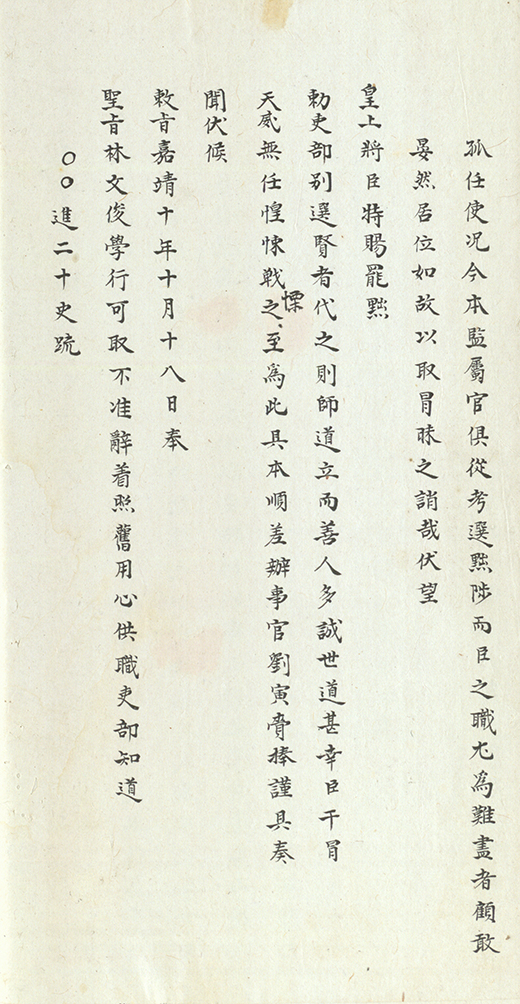 孤任使况今本監屬官俱從考選黜陟而臣之職尤為難盡者顧敢
晏然居位如故以取冒昧之誚哉伏望
皇上將臣特賜罷黜
勅吏部别選賢者代之則師道立而善人多誠世道甚幸臣干冐
天威無任惶悚戰慄之至為此具本順差辦事官劉寅齎捧謹具奏
聞伏候
敕旨嘉靖十年十月十八日奉
聖旨林文俊學行可取不准辭着照舊用心供職吏部知道
〇〇進二十史䟽